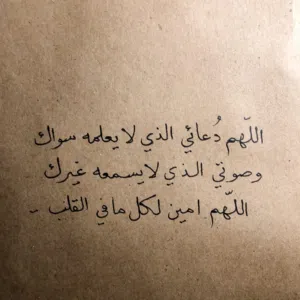 اللّهم دُعائي الذي لا يعلمه سواك
وصوتي الذي لا يسمعه غيرك
اللّهم امين لكل ما في القلب ..